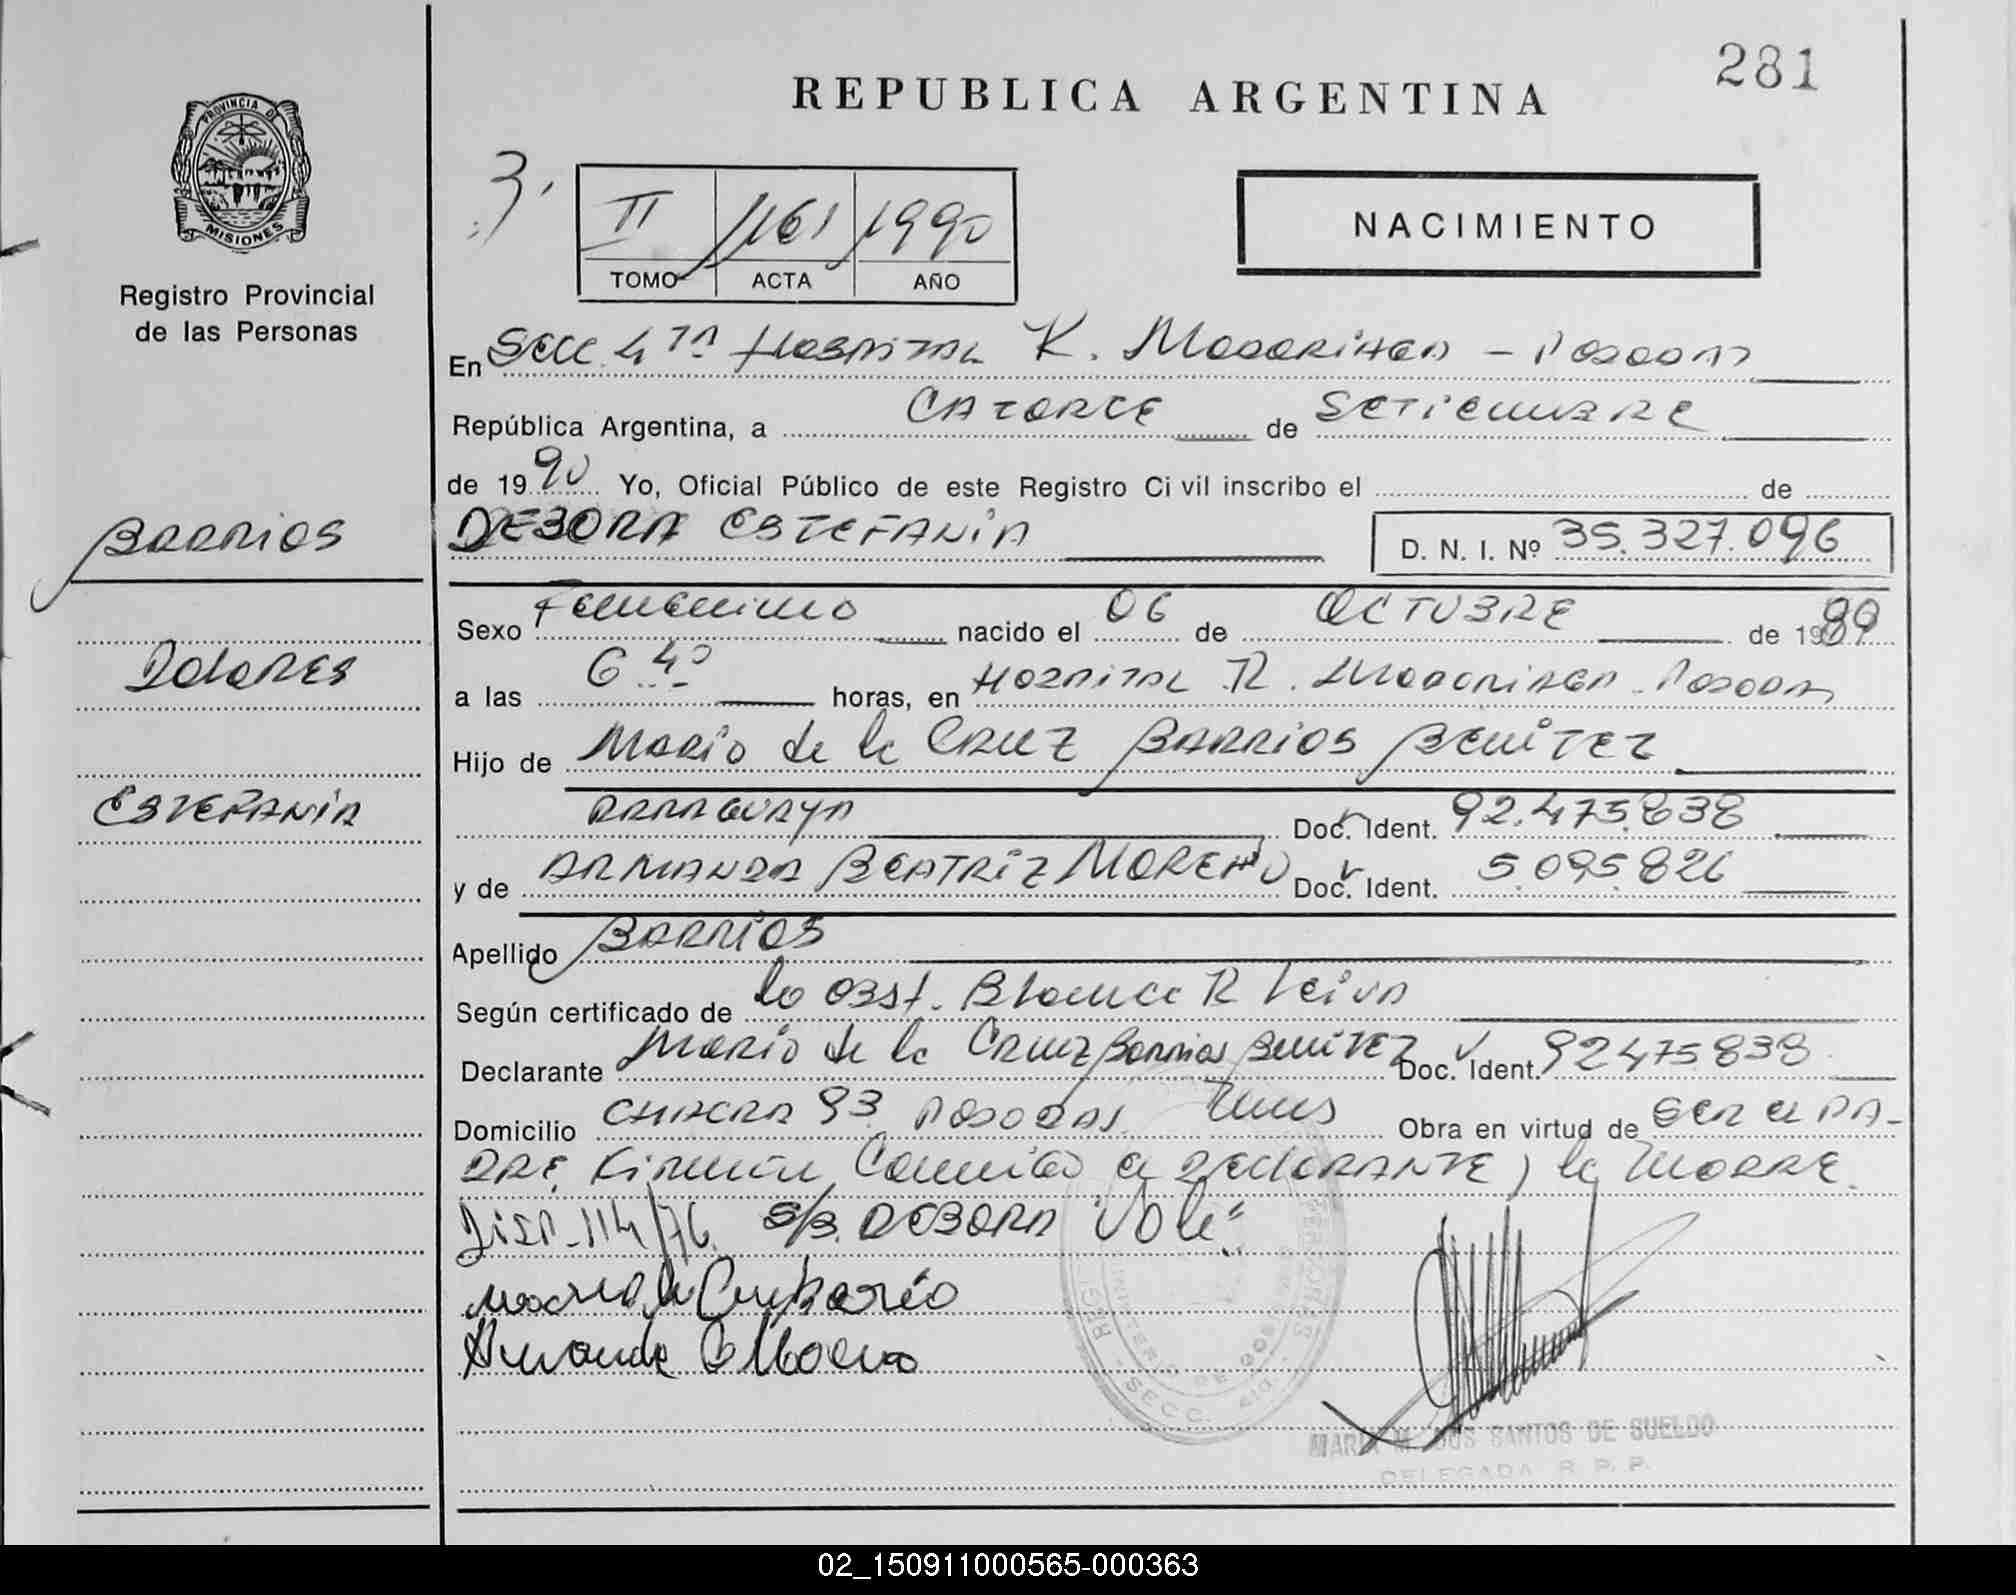 281
REPUBLICA ARGENTINA
PROVINCIA DE
MISIONES
Registro Provincial
de las Personas
3.
II 1161 1990
TOMO ACTA AÑO
NACIMIENTO
En Secc. 4ta Hospital R. Madariaga - Posadas
República Argentina, a CATORCE de SETIEMBRE
de 1990 Yo, Oficial Público de este Registro Civil inscribo el de
BARRIOS
DEBORA ESTEFANIA
D. N. I. Nº 35.327.096
Sexo Femenino nacido el 06 de OCTUBRE de 1989
DOLORES
a las 6.40 horas, en HOSPITAL R. Madariaga - Posadas
Hijo de Mario de la CRUZ BARRIOS BENITEZ
ESTEFANIA
PARAGUAYA Doc. Ident. 92.475.838
y de ARMANDA BEATRIZ MORENO Doc. Ident. 5.095.826
Apellido BARRIOS
Según certificado de la obst. Blanca R Leiva
Declarante Mario de la Cruz Barrios BENITEZ Doc. Ident. 92475838
Domicilio CHACRA 93 POSADAS Mnes Obra en virtud de ser el PA-
DRE, Firman Conmigo el DECLARANTE y la MADRE.
Disp. 114/76. S/B. DEBORA "Vale".
Mario de la Cruz Barrio
Armanda B Moreno
SECC. 4ta
MINISTERIO DE GOBIERNO
MARIA M. DOS SANTOS DE SUELDO
DELEGADA R. P. P.
02_150911000565-000363